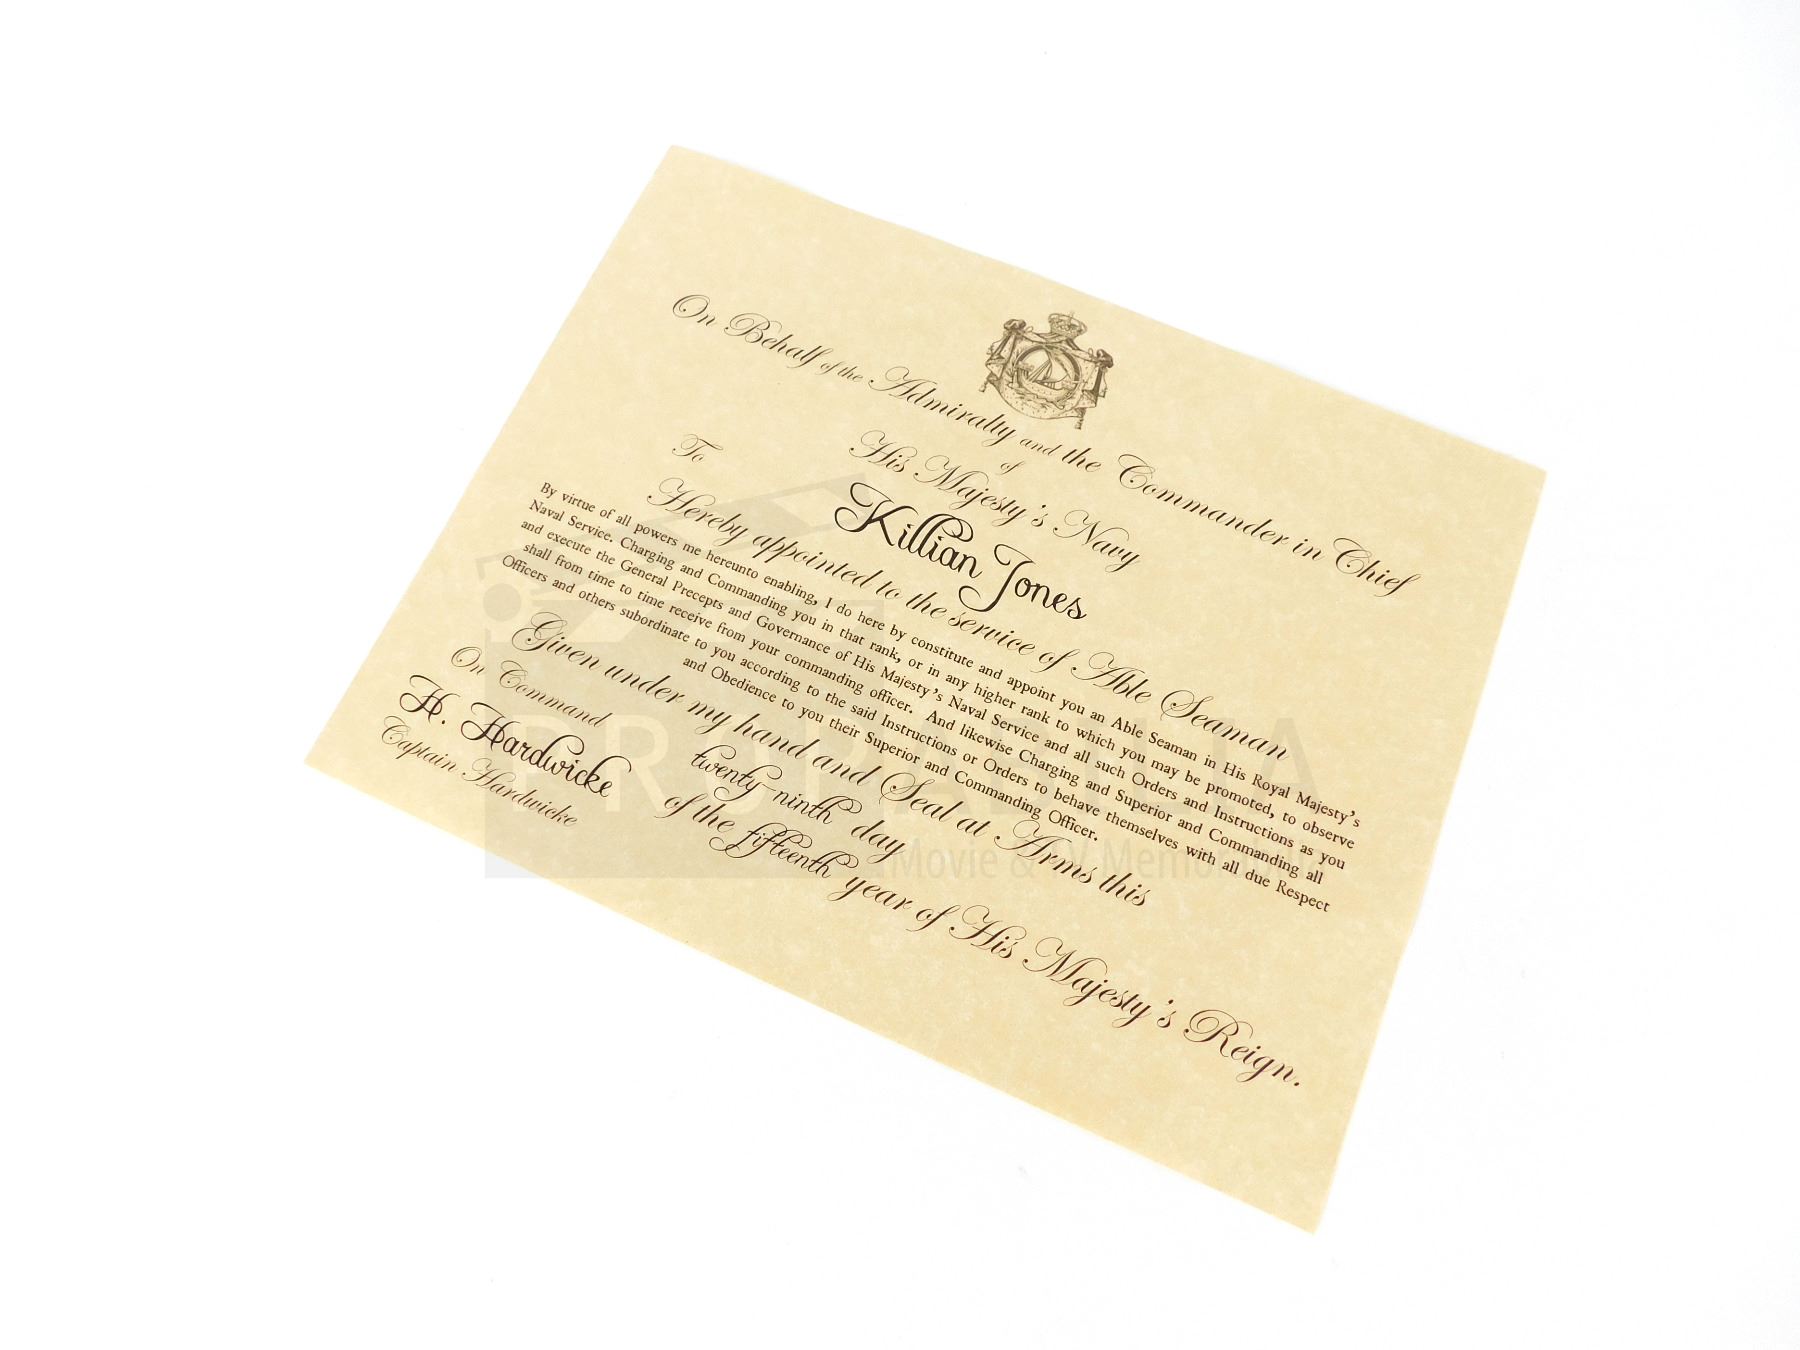 On Behalf of the Admiralty and the Commander in Chief
of
His Majesty's Navy
To
Killian Jones
Hereby appointed to the service of Able Seaman
By virtue of all powers me hereunto enabling, I do here by constitute and appoint you an Able Seaman in His Royal Majesty's
Naval Service. Charging and Commanding you in that rank, or in any higher rank to which you may be promoted, to observe
and execute the General Precepts and Governance of His Majesty's Naval Service and all such Orders and Instructions as you
shall from time to time receive from your commanding officer. And likewise Charging and Superior and Commanding all
Officers and others subordinate to you according to the said Instructions or Orders to behave themselves with all due Respect
and Obedience to you their Superior and Commanding Officer.
Given under my hand and Seal at Arms this
twenty-ninth day
of the fifteenth year of His Majesty's Reign.
On Command
H. Hardwicke
Captain Hardwicke
Movie & TV